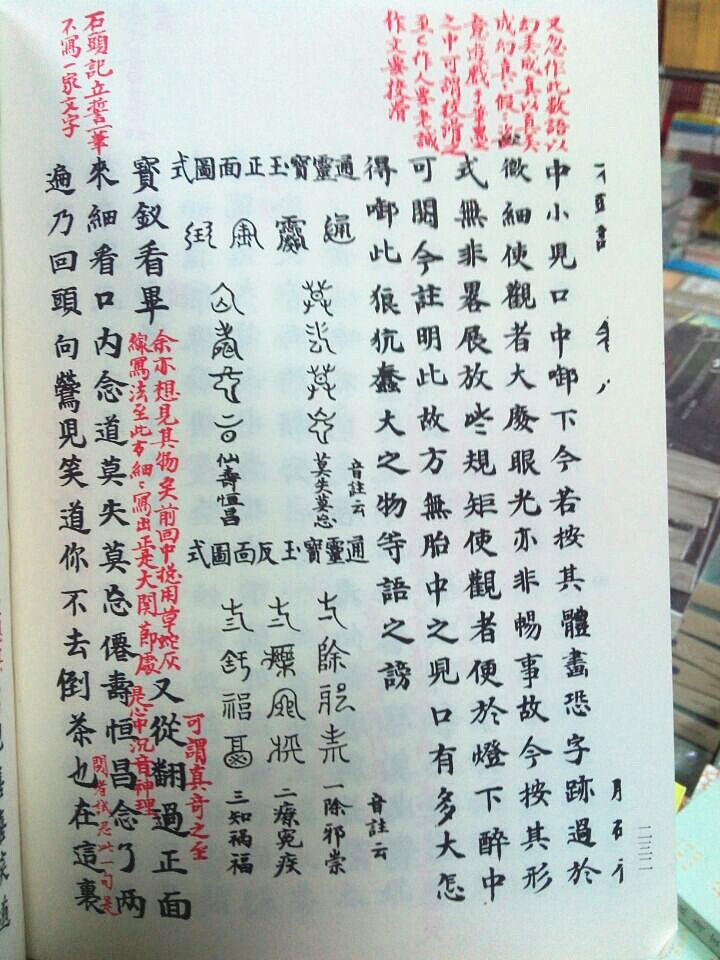 又忽作此數語以
幻弄成真以真弄
成幻真〻假〻恣
意遊戲于筆墨
之中可謂狡猾之
至〻作人要老誠
作文要狡猾
石頭記立誓一筆
不寫一家文字
中小兒口中啣下今若按其體畫恐字跡過於
微細使觀者大廢眼光亦非暢事故今按其形
式無非畧展放些規矩使觀者便於燈下醉中
可閱今註明此故方無胎中之兒口有多大怎
得啣此狼犺蠢大之物等語之謗
通靈寶玉正面圖式
音註云
莫失莫忘
仙壽恒昌
通靈寶玉反面圖式
音註云
一除邪祟
二療冤疾
三知禍福
可謂真奇之至
寶釵看畢
余亦想見其物矣前回中總用草蛇灰
線寫法至此方細〻寫出正是大關節處
又從翻過正面
來細看口內念道莫失莫忘僊壽恒昌念了兩
是心中沉音神理
遍乃回頭向鶯兒笑道你不去倒茶也在這裏
閱者試思此一句是
二三二